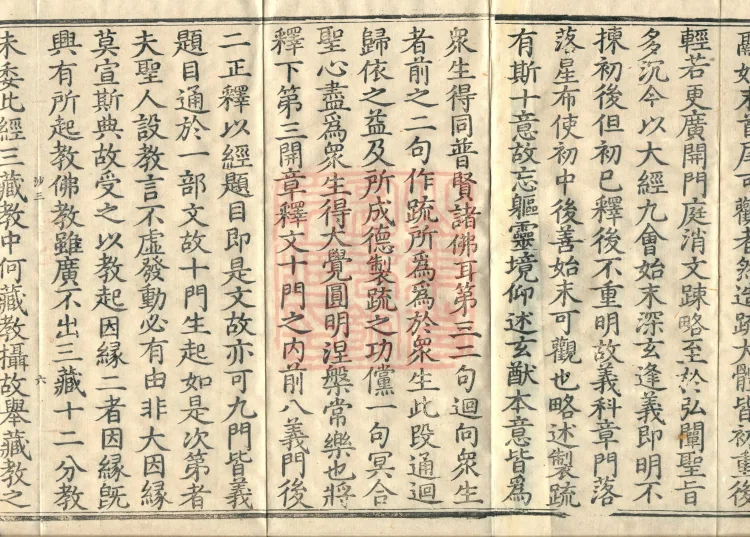 輕若更廣開門庭消文踈略至於弘闡聖旨
多沉今以大經九會始末深玄逢義即明不
揀初後但初已釋後不重明故義科章門落
落星布使初中後善始末可觀也略述製疏
有斯十意故忘軀靈境仰述玄猷本意皆爲
衆生得同普賢諸佛耳第三二句迴向衆生
者前之二句作疏所爲爲於衆生此段通迴
歸依之益及所成德製疏之功儻一句冥合
聖心盡爲衆生得大覺圓明涅槃常樂也將
釋下第三開章釋文十門之内前八義門後
二正釋以經題目即是文故亦可九門皆義
題目通於一部文故十門生起如是次第者
夫聖人設教言不虚發動必有由非大因緣
莫宣斯典故受之以教起因緣二者因緣旣
興有所起教佛教雖廣不出三藏十二分教
沙三
六
未委此經三藏教中何藏教攝故舉藏教之